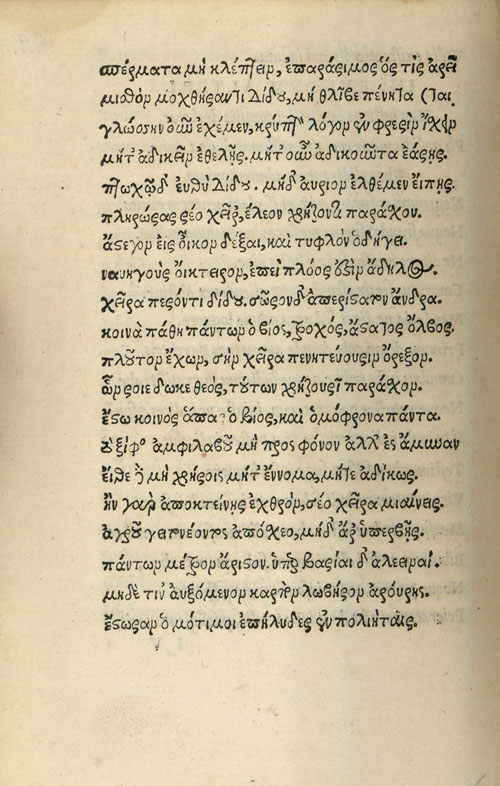 σπέρματα μὴ κλέπτειν, ἐπαράσιμος ὅς τις ἀρεῖ
μισθὸν μοχθήσαντι δίδου, μὴ θλῖβε πένητα (ται
γλώσσην οὖν ἐχέμεν, κρυπτὸν λόγον ἐν φρεσὶν ἴσχειν
μήτ ἀδικεῖν ἐθέλῃς. μήτ οὖν ἀδικοῦντα ἐάσῃς.
πτωχῷ δ' εὐθὺ δίδου. μηδ' αὔριον ἐλθέμεν εἴπῃς.
πληρώσας σέο χεῖρ', ἔλεον χρῄζοντι παράσχου.
ἄστεγον εἰς οἶκον δέξαι, καὶ τυφλὸν ὁδήγει.
ναυηγοὺς οἴκτειρον, ἐπεὶ πλόος ἐστὶν ἄδηλος.
χεῖρα πεσόντι δίδου. σῶσον δ' ἀπερίστατον ἄνδρα.
κοινὰ πάθη πάντων ὁ βίος, τροχός, ἄστατος ὄλβος.
πλοῦτον ἔχων, σὴν χεῖρα πενητεύουσιν ὄρεξον.
ὧν σοι ἔδωκε θεὸς, τούτων χρῄζουσι παράσχον.
ἔστω κοινὸς ἅπας ὁ βίος, καὶ ὁμόφρονα πάντα.
ξίφος ἀμφιλαβοῦ μὴ προς φόνον ἀλλ' ἐς ἄμυναν
εἴθε μὴ χρῄζοις μήτ ἔννομα, μήτε ἀδίκως.
ἢν γὰρ ἀποκτείνῃς ἐχθρὸν, σέο χεῖρα μιαίνεις.
ἀγροῦ γειτνέοντος ἀπόσχεο, μηδ' ἄρ' ὑπερβῇς.
πάντων μέτρον ἄριστον. ὑπερβασίαι δ' ἀλεειναί.
μηδέ τιν' αὐξόμενον καρπὸν λωβήσον ἀρούρης.
ἔστωσαν ὁμότιμοι ἐπήλυδες ἐν πολιήταις.